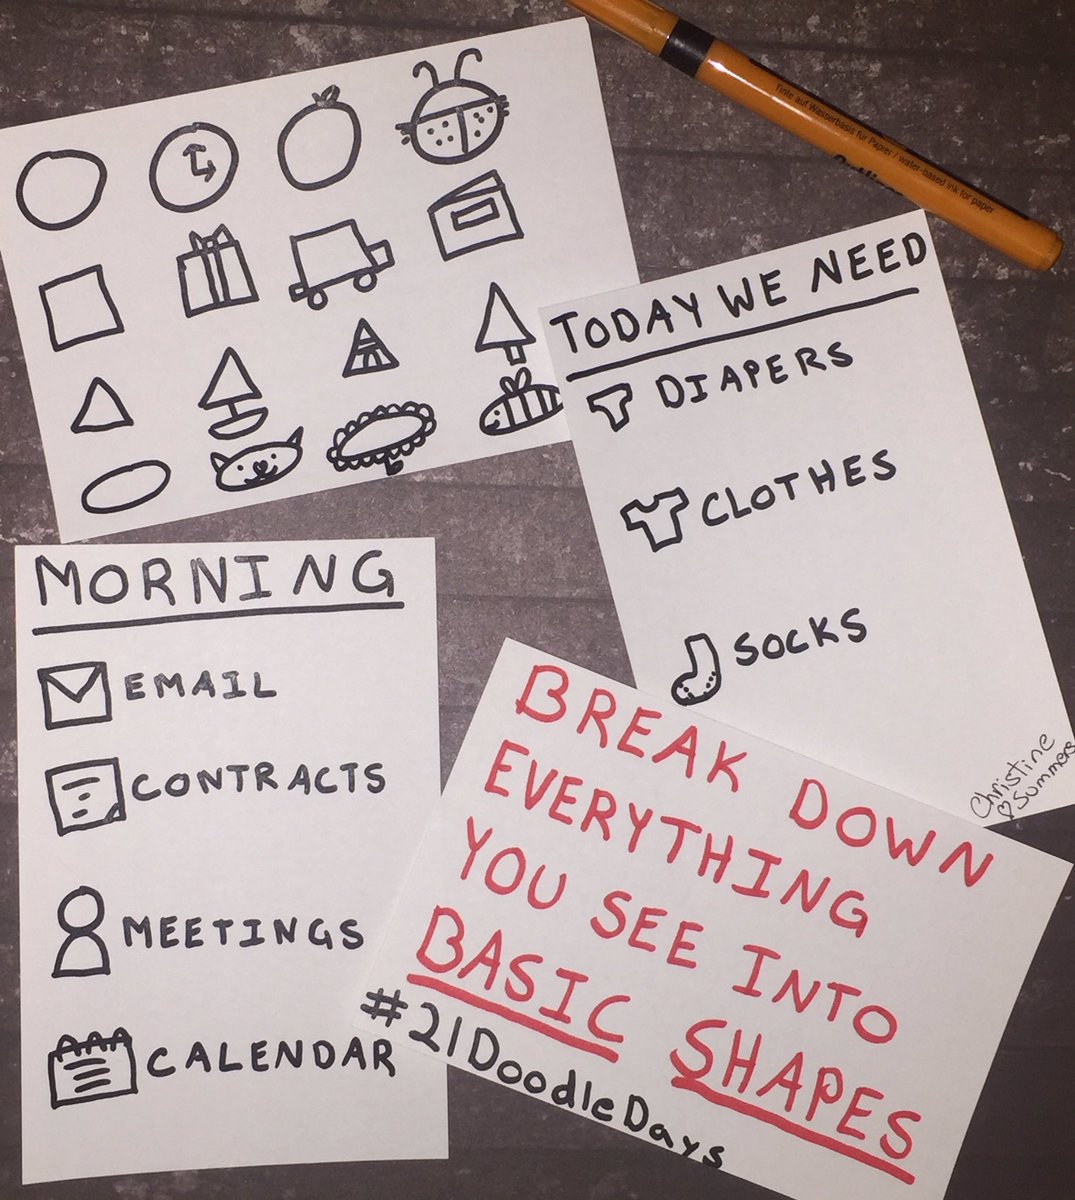 Tinte auf Wasserbasis für Papier / water-based ink for paper
TODAY WE NEED
DIAPERS
CLOTHES
SOCKS
Christine
Summers
MORNING
EMAIL
CONTRACTS
MEETINGS
CALENDAR
BREAK DOWN
EVERYTHING
YOU SEE INTO
BASIC SHAPES
#21DoodleDays